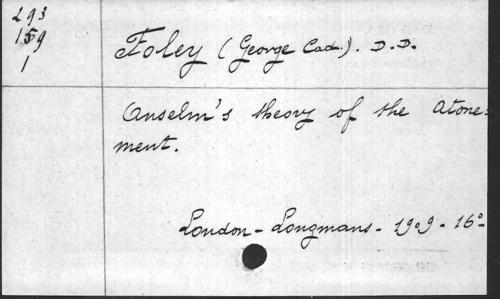 293
159
1
Foley (George Cad.). D.D.
Anselm's theory of the Atone-
ment.
London - Longmans - 1909 - 16º